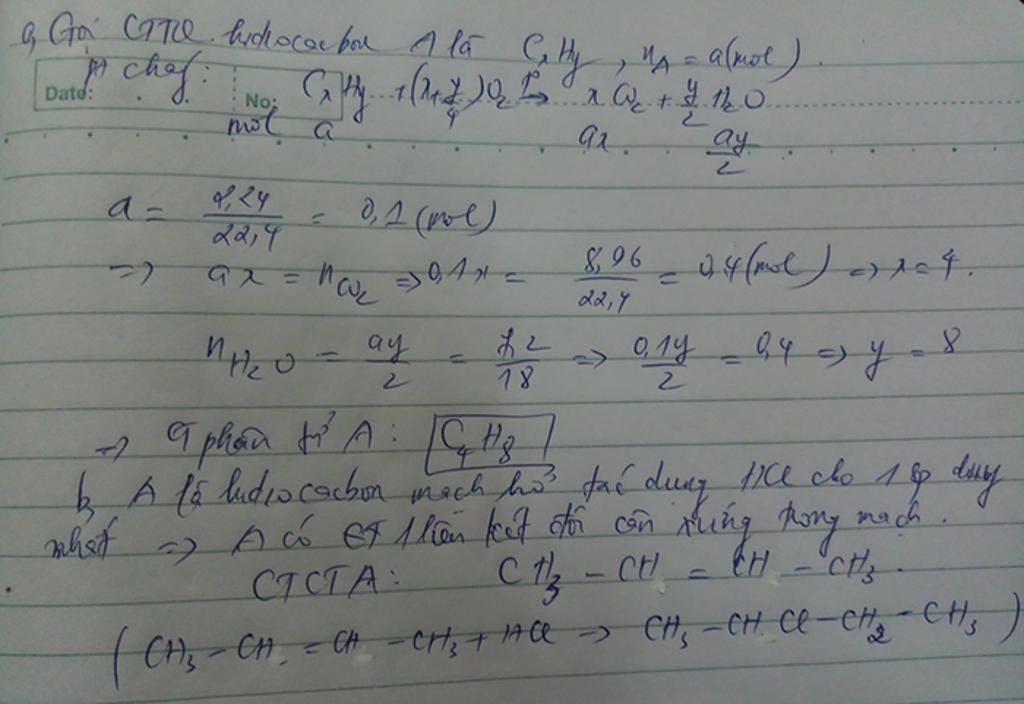 a, Gọi CTTQ hidrocacbon A là CxHy, nA = a(mol).
pt cháy: CxHy + (x+y/4)O2 t°→ xCO2 + y/2 H2O
Date: No:
mol a ax ay/2
a = 2,24/22,4 = 0,1 (mol)
=> ax = nCO2 => 0,1x = 8,96/22,4 = 0,4(mol) => x = 4.
nH2O = ay/2 = 7,2/18 => 0,1y/2 = 0,4 => y = 8
=> CT phân tử A: C4H8
b, A là hidrocacbon mạch hở tác dụng HCl cho 1 sp duy
nhất => A có 1 liên kết đôi cân xứng trong mạch.
CTCT A: CH3 - CH = CH - CH3.
(CH3 - CH = CH - CH3 + HCl -> CH3 - CHCl - CH2 - CH3)